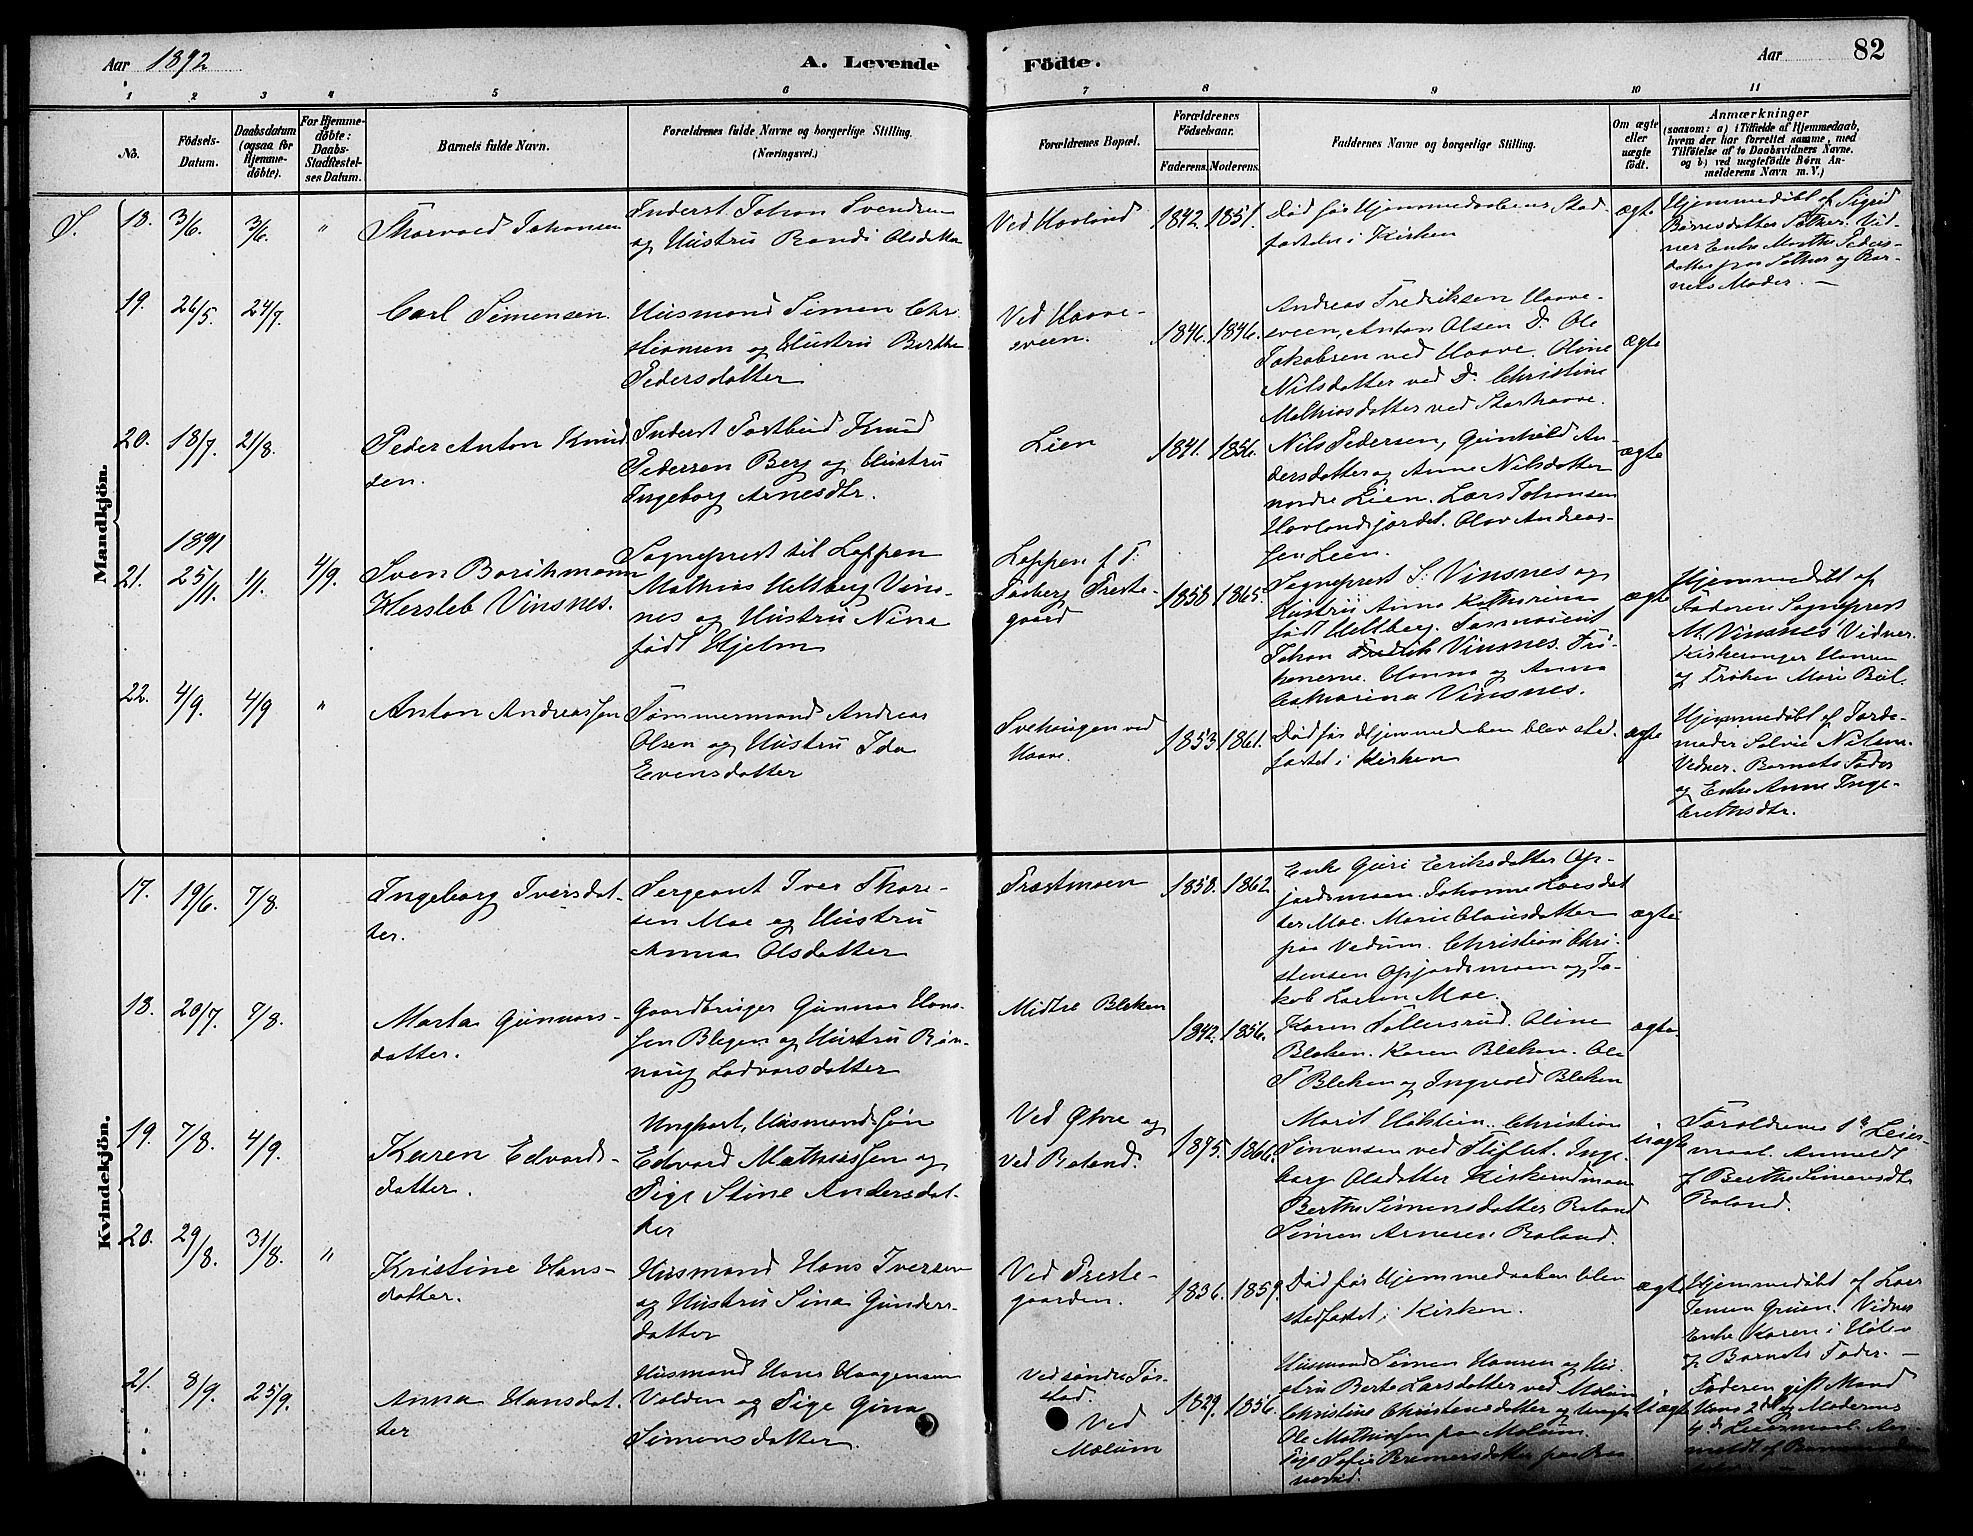 Aar 1892
A. Levende
Födte.
Aar
82
1
2
3
4
5
6
7
8
9
10
11
No.
Födsels-
Datum.
Daabsdatum
(ogsaa for
Hjemme-
döbte).
For Hjemme-
döbte:
Daabs-
Stadfæstel-
ses Datum.
Barnets fulde Navn.
Forældrenes fulde Navne og borgerlige Stilling.
(Næringsvei.)
Forældrenes Bopæl.
Forældrenes
Födselsaar.
Faderens.
Moderens.
Faddernes Navne og borgerlige Stilling.
Om ægte
eller
uægte
födt.
Anmærkninger
(saasom: a) i Tilfælde af Hjemmedaab,
hvem der har forrettet samme, med
Tilföielse af to Daabsvidners Navne,
og b) ved uægtefödte Börn An-
melderens Navn m. V.)
S.
Mandkjön.
18.
3/6.
3/6.
"
Thorvald Johansen
Inderst Johan Svendsen
og Hustru Randi Olsdatter
Ved Hovland
1842.
1851.
Død før Hjemmedaabens Stad-
fæstelse i Kirken
ægte
Hjemmedøbt af Sigrid
Vid-
ner Enke Marthe Peders-
datter paa og Bar-
nets Moder. —
19.
26/5.
24/7
Carl Simensen.
Husmand Simen Chr-
stiansen og Hustru Berthe
Pedersdatter
Ved Haave-
sveen.
1846.
1846.
Andreas Fredriksen Haave-
sveen, Anton Olsen Do. Ole
Jakobsen ved Haave. Oline
Nilsdatter ved Do. Christine
Mathiasdatter ved Storhaave.
ægte
20.
18/7.
21/8.
Peder Anton Knud-
sen.
Inderst Postbud Knud
Pedersen Berg og Hustru
Ingeborg Arnesdtr.
Lien
1841.
1856.
Nils Pedersen, Gunhild An-
dersdatter og Anne Nilsdatter
nordre Lien. Lars Johansen
Hovlandsjordet. Olav Andreas-
sen Lien.
ægte
21.
1891
25/11.
1/1.
4/9.
Sven Borchmann
Hersleb Vinsnes.
Sogneprest til Loppen
Mathias Heltberg Vins-
nes og Hustru Nina
født Hjelm
Loppen f. T.
Faaberg Preste-
gaard
1858.
1865.
Sogneprest S. Vinsnes og
Hustru Anna Katharina
født Heltberg.
Johan Vinsnes. Frø-
kenerne. Hanna og Anna
Catharina Vinsnes.
ægte
Hjemmedøbt af
Faderen Sogneprest
M. Vinsnes. Vidner.
Kirkesanger Hansen
og Frøken Mari
22.
4/9.
4/9
"
Anton Andreassen
Tømmermand Andreas
Olsen og Hustru Ida
Evensdatter
Svehaugen ved
Haave.
1853
1861.
Død før Hjemmedaaben blev stad-
fæstet i Kirken
ægte
Hjemmedøbt af Jorde-
moder Nilsen.
Vidner. Barnets Fader
og Enke Anne Inge-
brethsdtr.
Kvindekjön.
17.
19/6.
7/8.
Ingeborg Iversdat-
ter.
Sergeant Iver Thore-
sen Moe og Hustru
Anna Olsdatter
Trostmoen
1858.
1862.
Enke Guri Eriksdatter Op-
jordsmoen. Johanne Larsdat
ter Moe. Marie Clausdatter
paa Vedum. Christian Chri-
stensen Opjordsmoen og Ja-
kob Larsen Moe.
ægte
18.
20/7.
7/8.
Marta Gunnars-
datter.
Gaardbruger Gunnar Hans-
sen Bleken og Hustru Røn-
naug Ladvarsdatter
Midtre Bleken
1842.
1856.
Karen Sollersrud. Oline
Bleken. Karen Bleken. Ole
T Bleken og Ingvald Bleken
ægte
19.
7/8.
4/9.
Karen Edvards-
datter.
Ungkarl, Husmandssøn
Edvard Mathiassen og
Pige Stine Andersdat-
ter
Ved Øvre og
ved Roland.
1875.
1866.
Marit Holstein. Christian
Simensen ved Stiftet. Inge-
borg Olsdatter
Berthe Simensdatter Roland
Simen Arnesen Roland.
uægte
Forældrenes 1ste Leier-
maal. Anmeldt
af Berthe Simensdtr
Roland.
20.
29/8.
31/8.
"
Kristine Hans-
datter.
Husmand Hans Iversen
og Hustru Sina Gunders-
datter
Ved Preste-
gaarden.
1836.
1859.
Død før Hjemmedaaben blev
stadfæstet i Kirken.
ægte
Hjemmedøbt af Lars
Jensen Vidner
Enke Karen i
og Barnets Fader. —
21.
8/9.
25/9.
Anna Hansdat-
ter
Husmand Hans Haagensen
Volden og Pige Gina
Simensdatter.
Ved søndre Jør-
stad.
Ved
Molum
1829.
1856.
Husmand Simen Hansen og Hu-
stru Berte Larsdatter ved Molum
Christine Christensdatter og Ungk.
Ole Mathiassen paa Molum.
Pige Sofie
uægte
Faderen gift Mand
Hans 2det og Moderens
4de Leiermaal. An-
meldt af